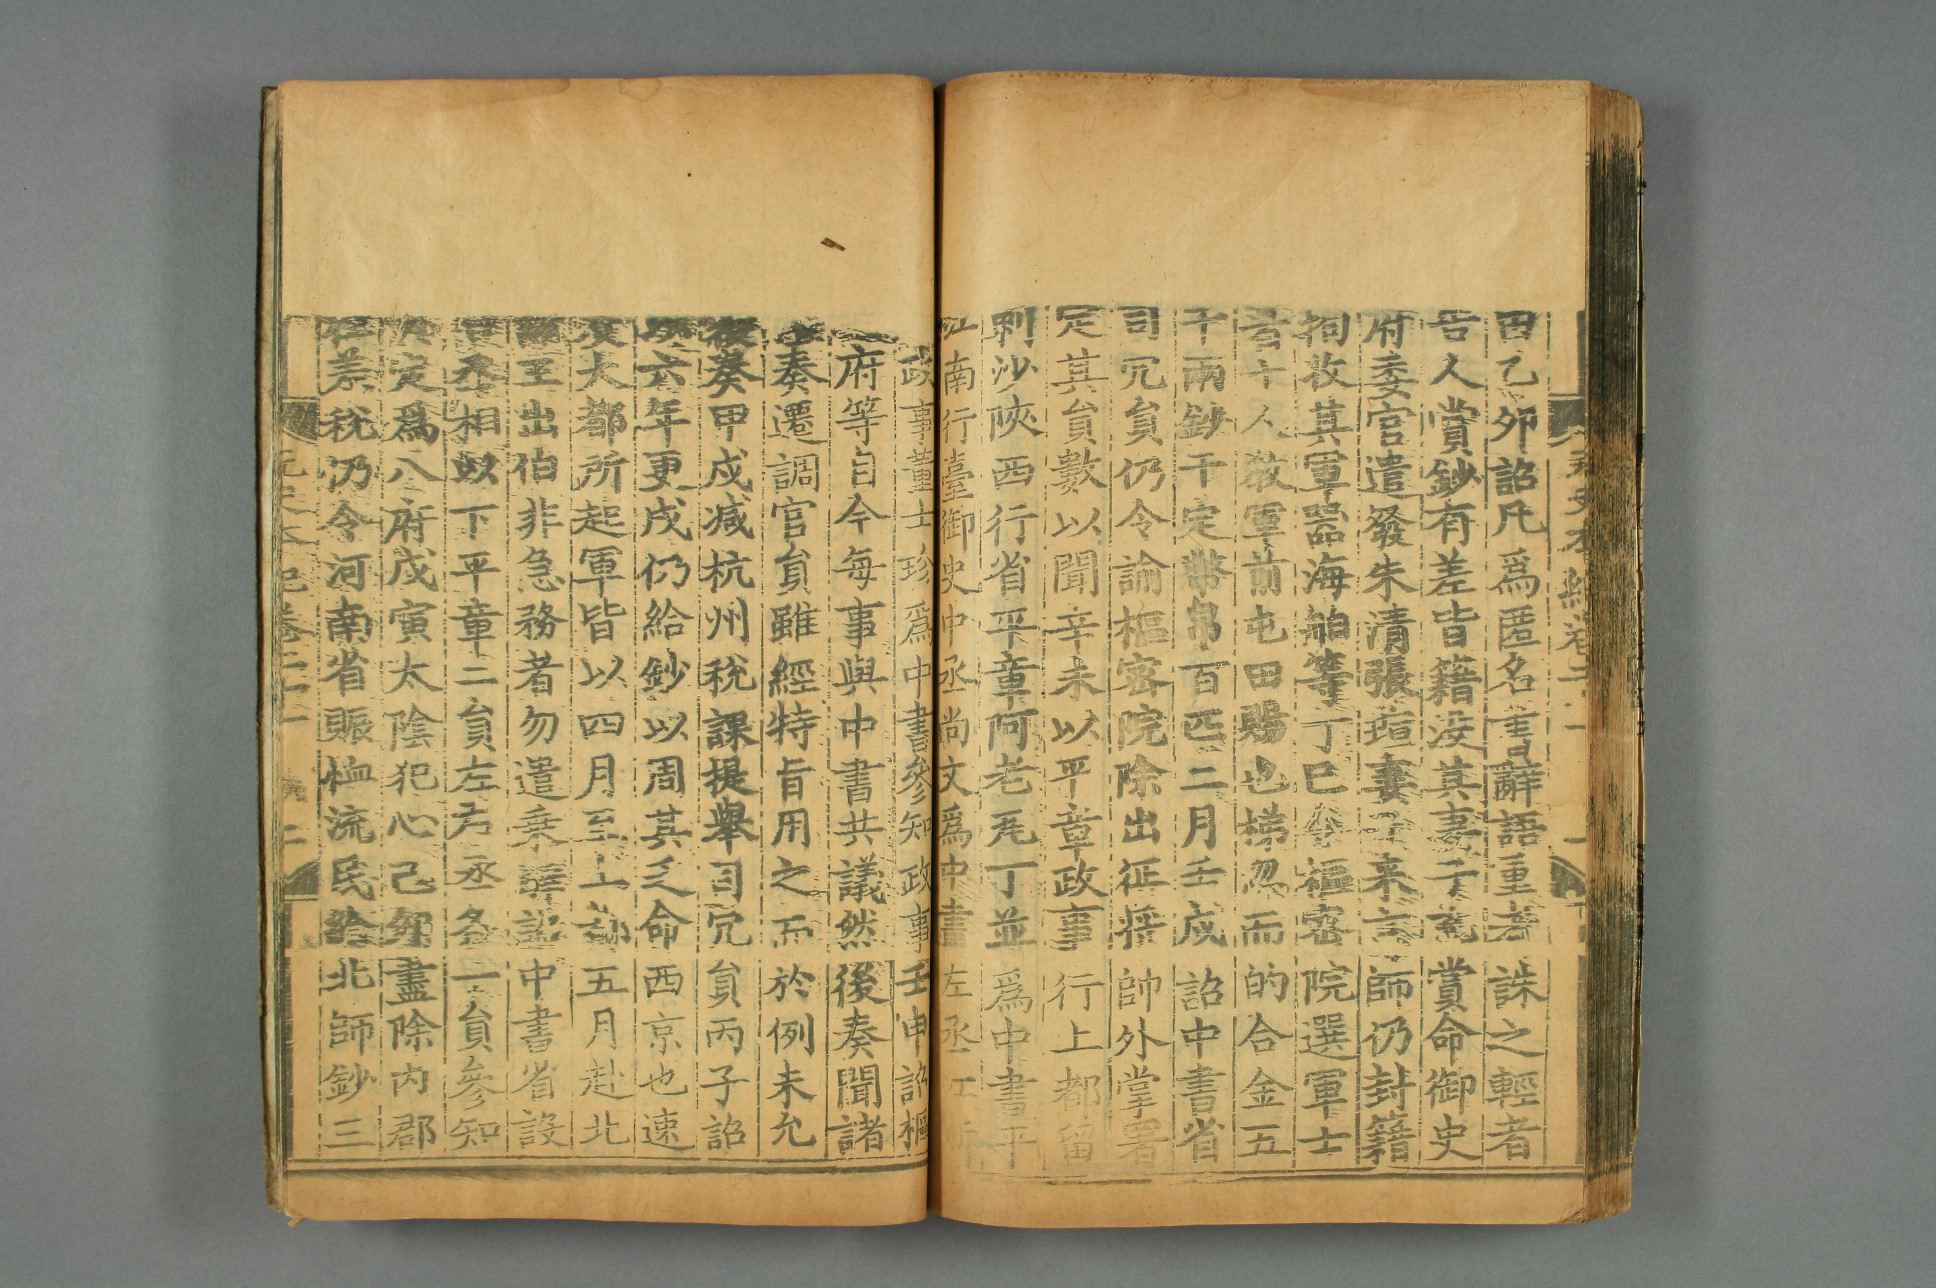 田乙卯詔凡爲匿名書辭語重者誅之輕者
告人賞鈔有差皆籍没其妻子充賞命御史
府委官遣發朱清張瑄妻子來京師仍封籍
拘收其軍器海舶等丁巳命樞密院選軍士
習農業十人教軍前屯田賜也梯忽而的合金五
十兩鈔千定幣帛百匹二月壬戌詔中書省
司冗員仍令諭樞密院除出征將帥外掌署
定其員數以聞辛未以平章政事行上都留
剌沙陝西行省平章阿老瓦丁並爲中書平
江南行臺御史中丞尚文爲中書左丞江浙
政事董士珍爲中書參知政事壬申詔樞
府等自今每事與中書共議然後奏聞諸
奏遷調官員雖經特旨用之而於例未允
復奏甲戌减杭州稅課提舉司冗員丙子詔
以六年更戍仍給鈔以周其乏命西京也速
及大都所起軍皆以四月至上都五月赴北
諸王出伯非急務者勿遣乘驛詔中書省設
自丞相以下平章二員左右丞各一員參知
定爲八府戊寅太陰犯心己卯盡除内郡
差稅仍令河南省賑恤流民給北師鈔三
元史本紀卷二十一
二